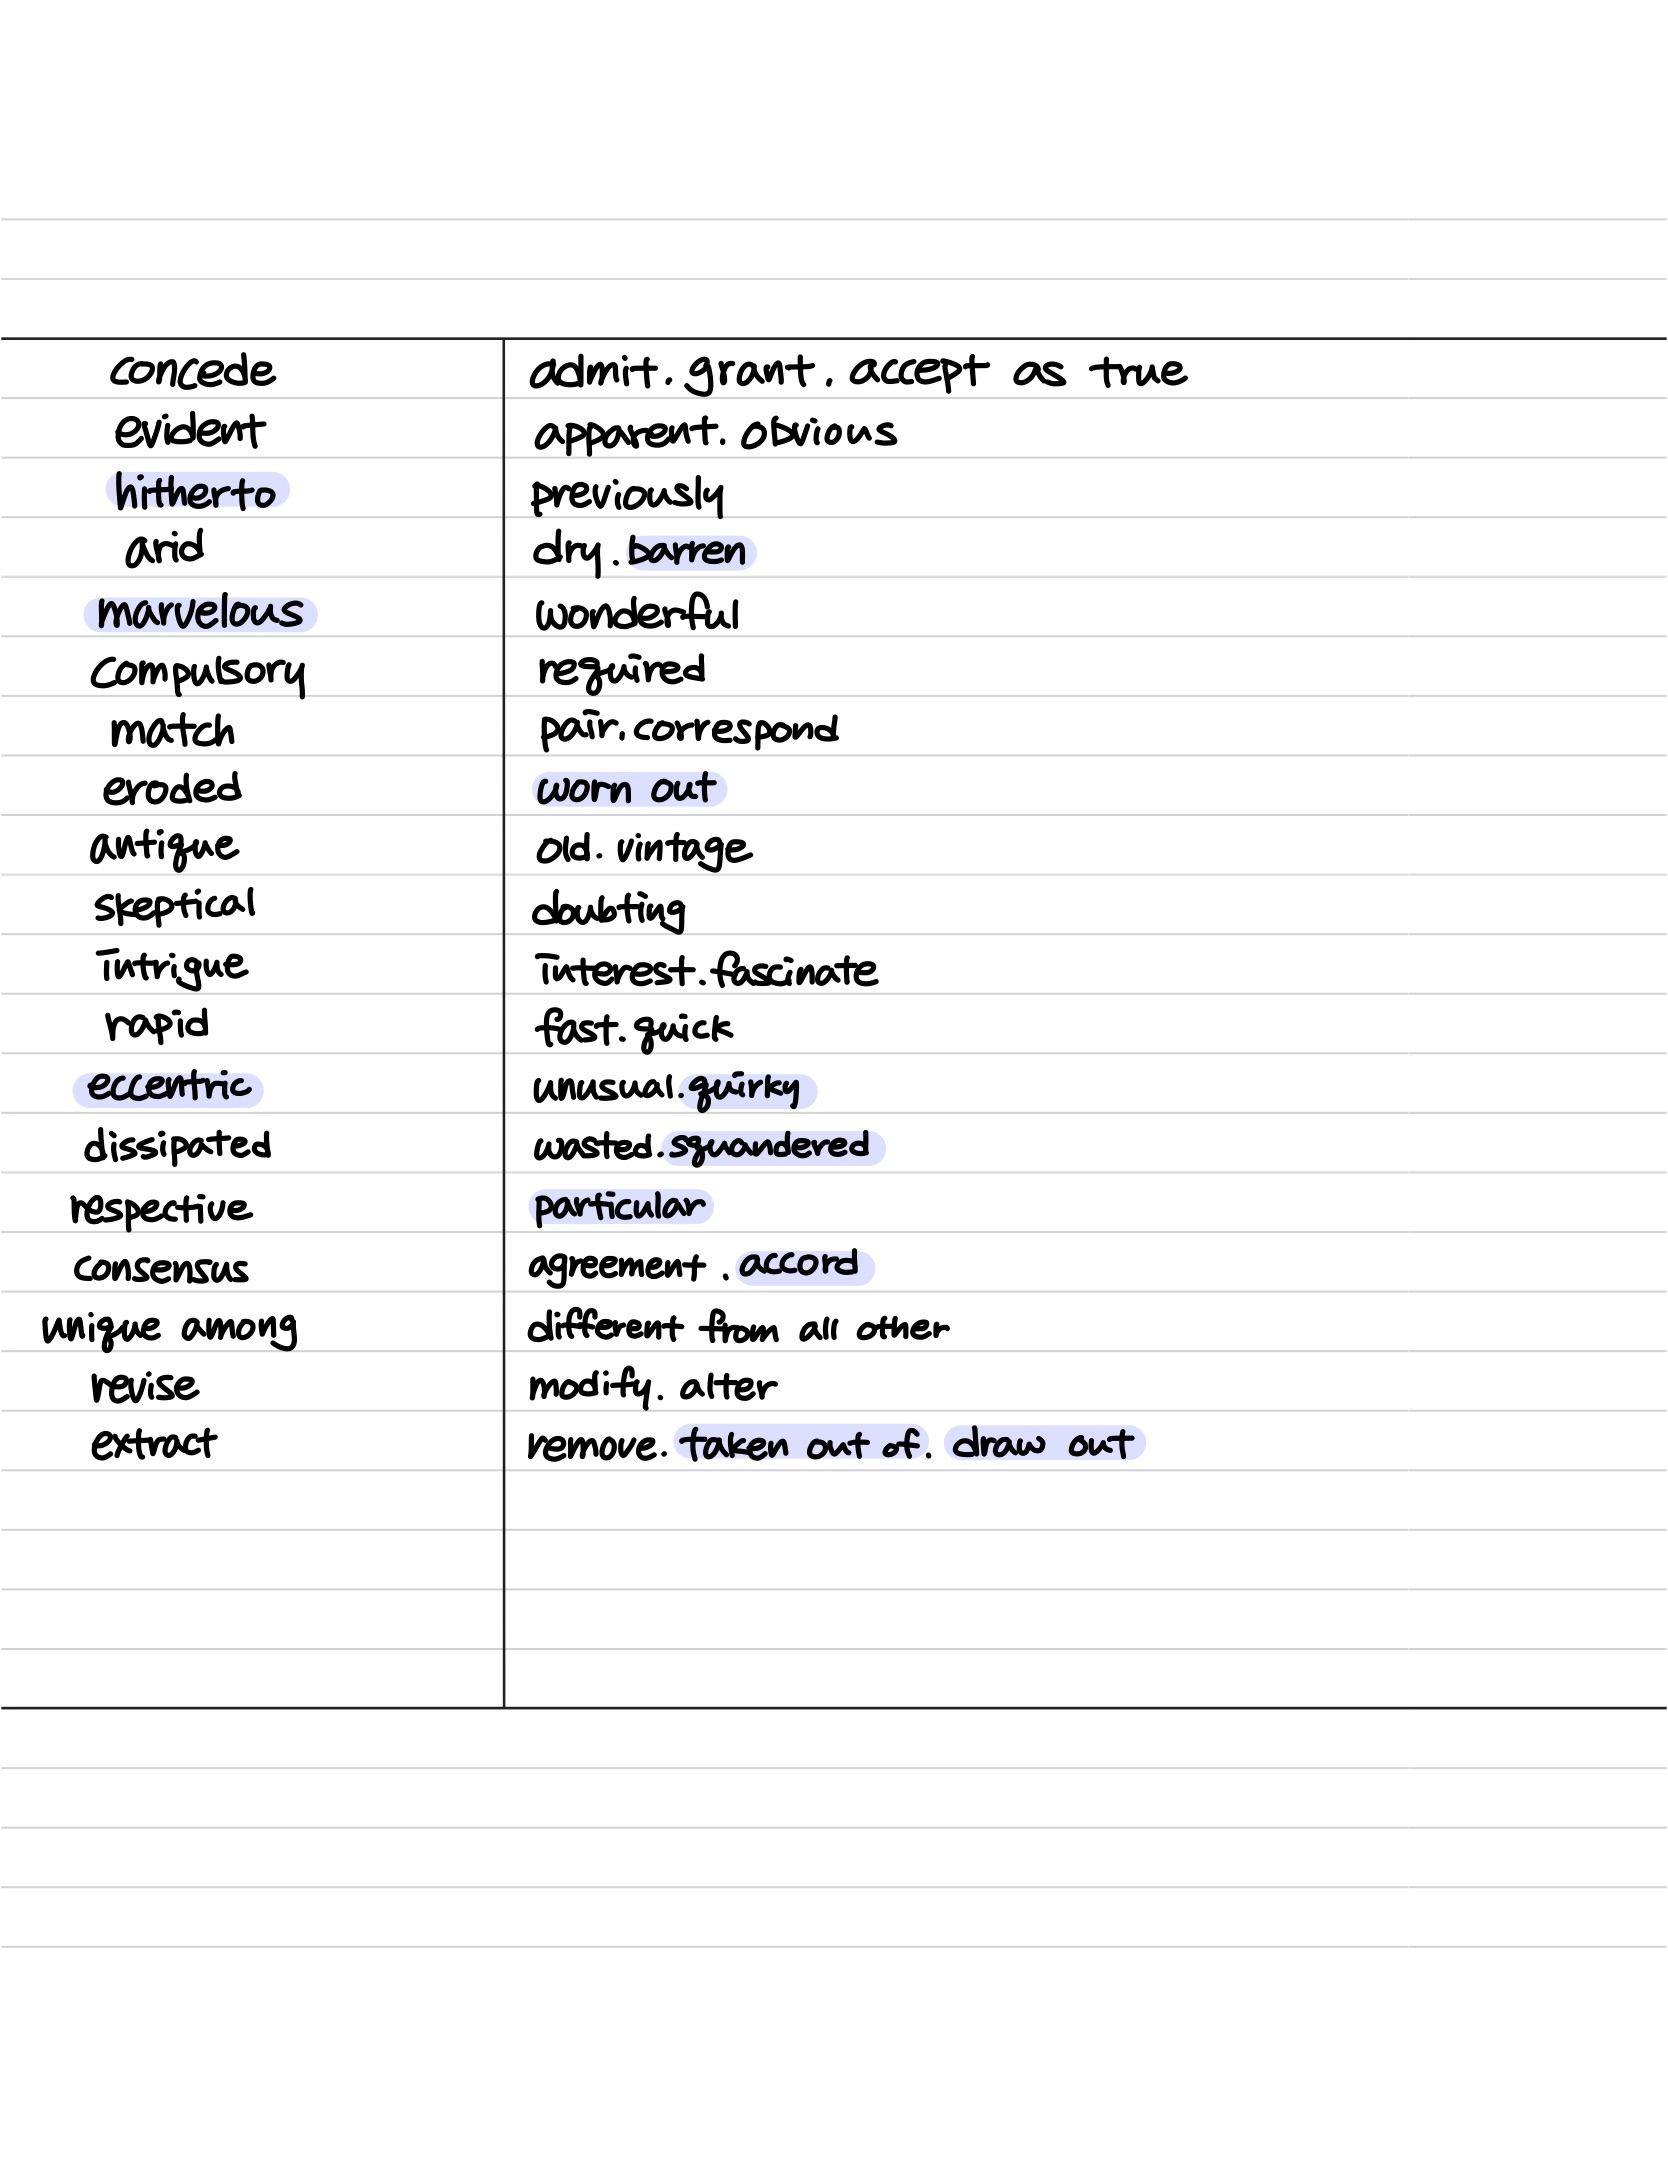 concede admit. grant. accept as true
evident apparent. obvious
hitherto previously
arid dry. barren
marvelous wonderful
compulsory required
match pair. correspond
eroded worn out
antique old. vintage
skeptical doubting
intrigue interest. fascinate
rapid fast. quick
eccentric unusual. quirky
dissipated wasted. squandered
respective particular
consensus agreement. accord
unique among different from all other
revise modify. alter
extract remove. taken out of. draw out